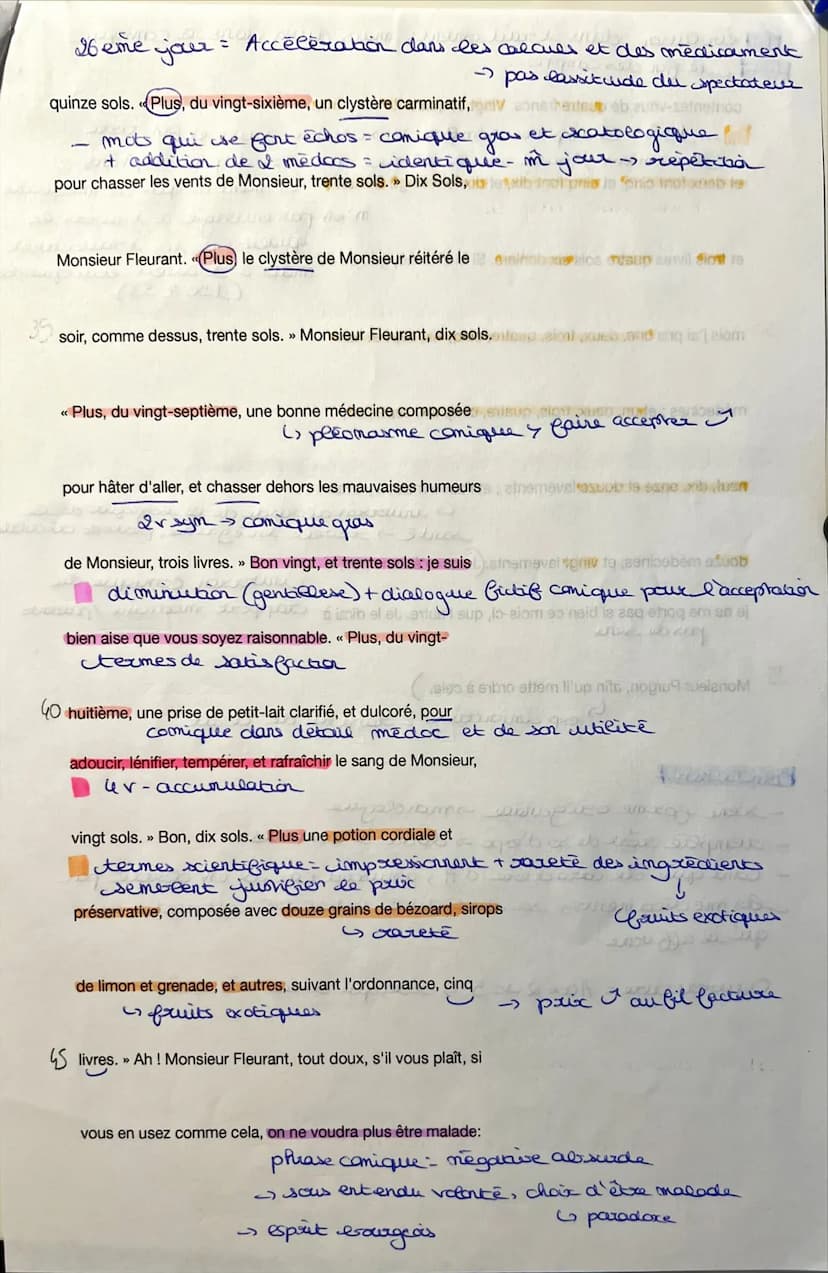 26ème jour = Accélération dans les calculs et des médicament
→ pas lassitude du spectateur
quinze sols. «Plus, du vingt-sixième, un clystère carminatif,
- mots qui se font échos = comique gras et scatologique
+ addition de 2 médocs = identique - m̂ jour → répétition
pour chasser les vents de Monsieur, trente sols. » Dix Sols,
Monsieur Fleurant. «Plus le clystère de Monsieur réitéré le
35 soir, comme dessus, trente sols. » Monsieur Fleurant, dix sols.
« Plus, du vingt-septième, une bonne médecine composée
↳ pléonasme comique → faire accepter ↗
pour hâter d'aller, et chasser dehors les mauvaises humeurs
2 v syn → comique gras
de Monsieur, trois livres. » Bon vingt, et trente sols : je suis
diminution (gentillesse) + dialogue fictif comique pour l'acceptation
bien aise que vous soyez raisonnable. « Plus, du vingt-
termes de satisfaction
40 huitième, une prise de petit-lait clarifié, et dulcoré, pour
comique dans détail médoc et de son utilité
adoucir, lénifier, tempérer, et rafraîchir le sang de Monsieur,
4 v - accumulation
vingt sols. » Bon, dix sols. « Plus une potion cordiale et
termes scientifique = impressionnent + rareté des ingrédients
semblent justifier le prix
↓
fruits exotiques
préservative, composée avec douze grains de bézoard, sirops
↳ rareté
de limon et grenade, et autres, suivant l'ordonnance, cinq
↳ fruits exotiques
→ prix ↗ au fil facture
45 livres. » Ah ! Monsieur Fleurant, tout doux, s'il vous plaît, si
vous en usez comme cela, on ne voudra plus être malade:
phrase comique = négative absurde
→ sous entendu volonté, choix d'être malade
↳ paradoxe
→ esprit bourgeois